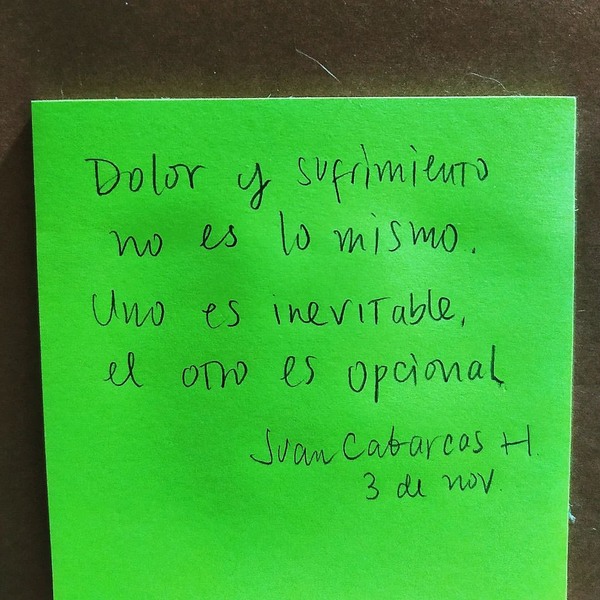 Dolor y sufrimiento
no es lo mismo.
Uno es inevitable,
el otro es opcional
Juan Cabarcas H.
3 de nov.